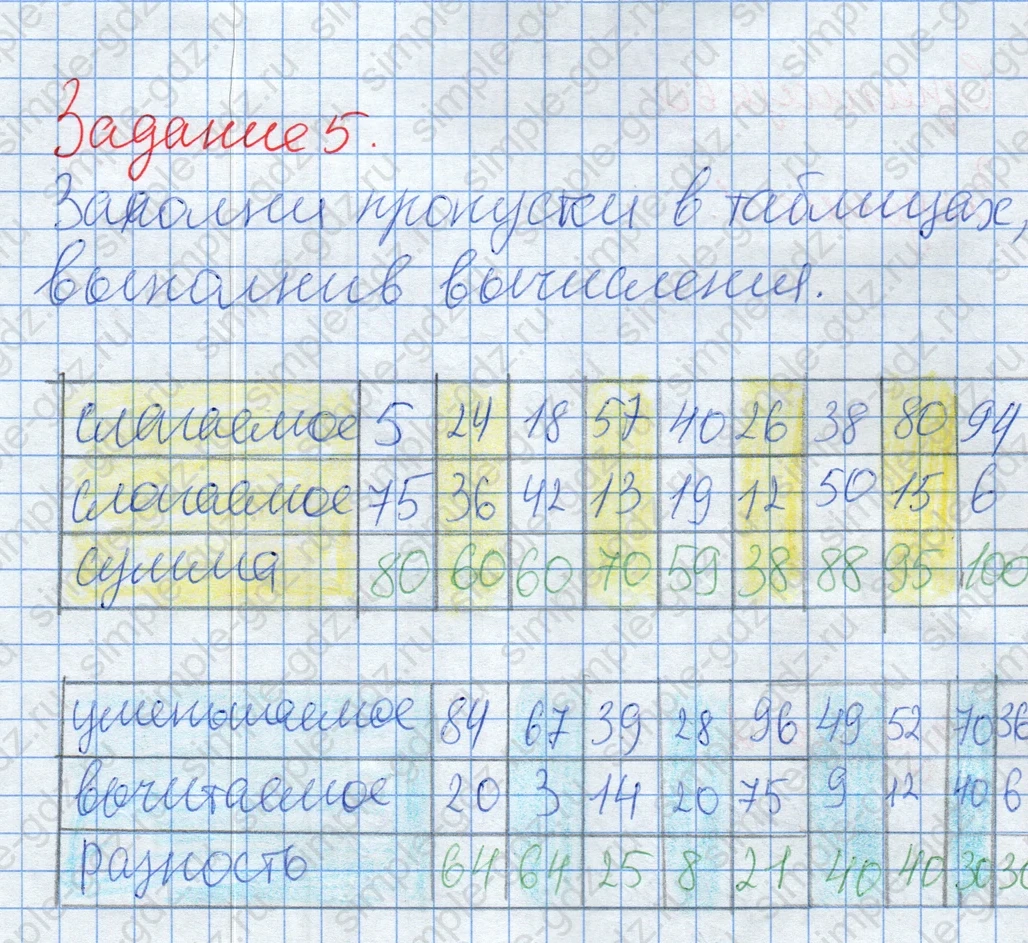 Задание 5.
Заполни пропуски в таблицах,
выполнив вычисления.
слагаемое 5 24 18 57 40 26 38 80 94
слагаемое 75 36 42 13 19 12 50 15 6
сумма 80 60 60 70 59 38 88 95 100
уменьшаемое 84 67 39 28 96 49 52 70 36
вычитаемое 20 3 14 20 75 9 12 40 6
разность 64 64 25 8 21 40 40 30 30
simple-gdz.ru